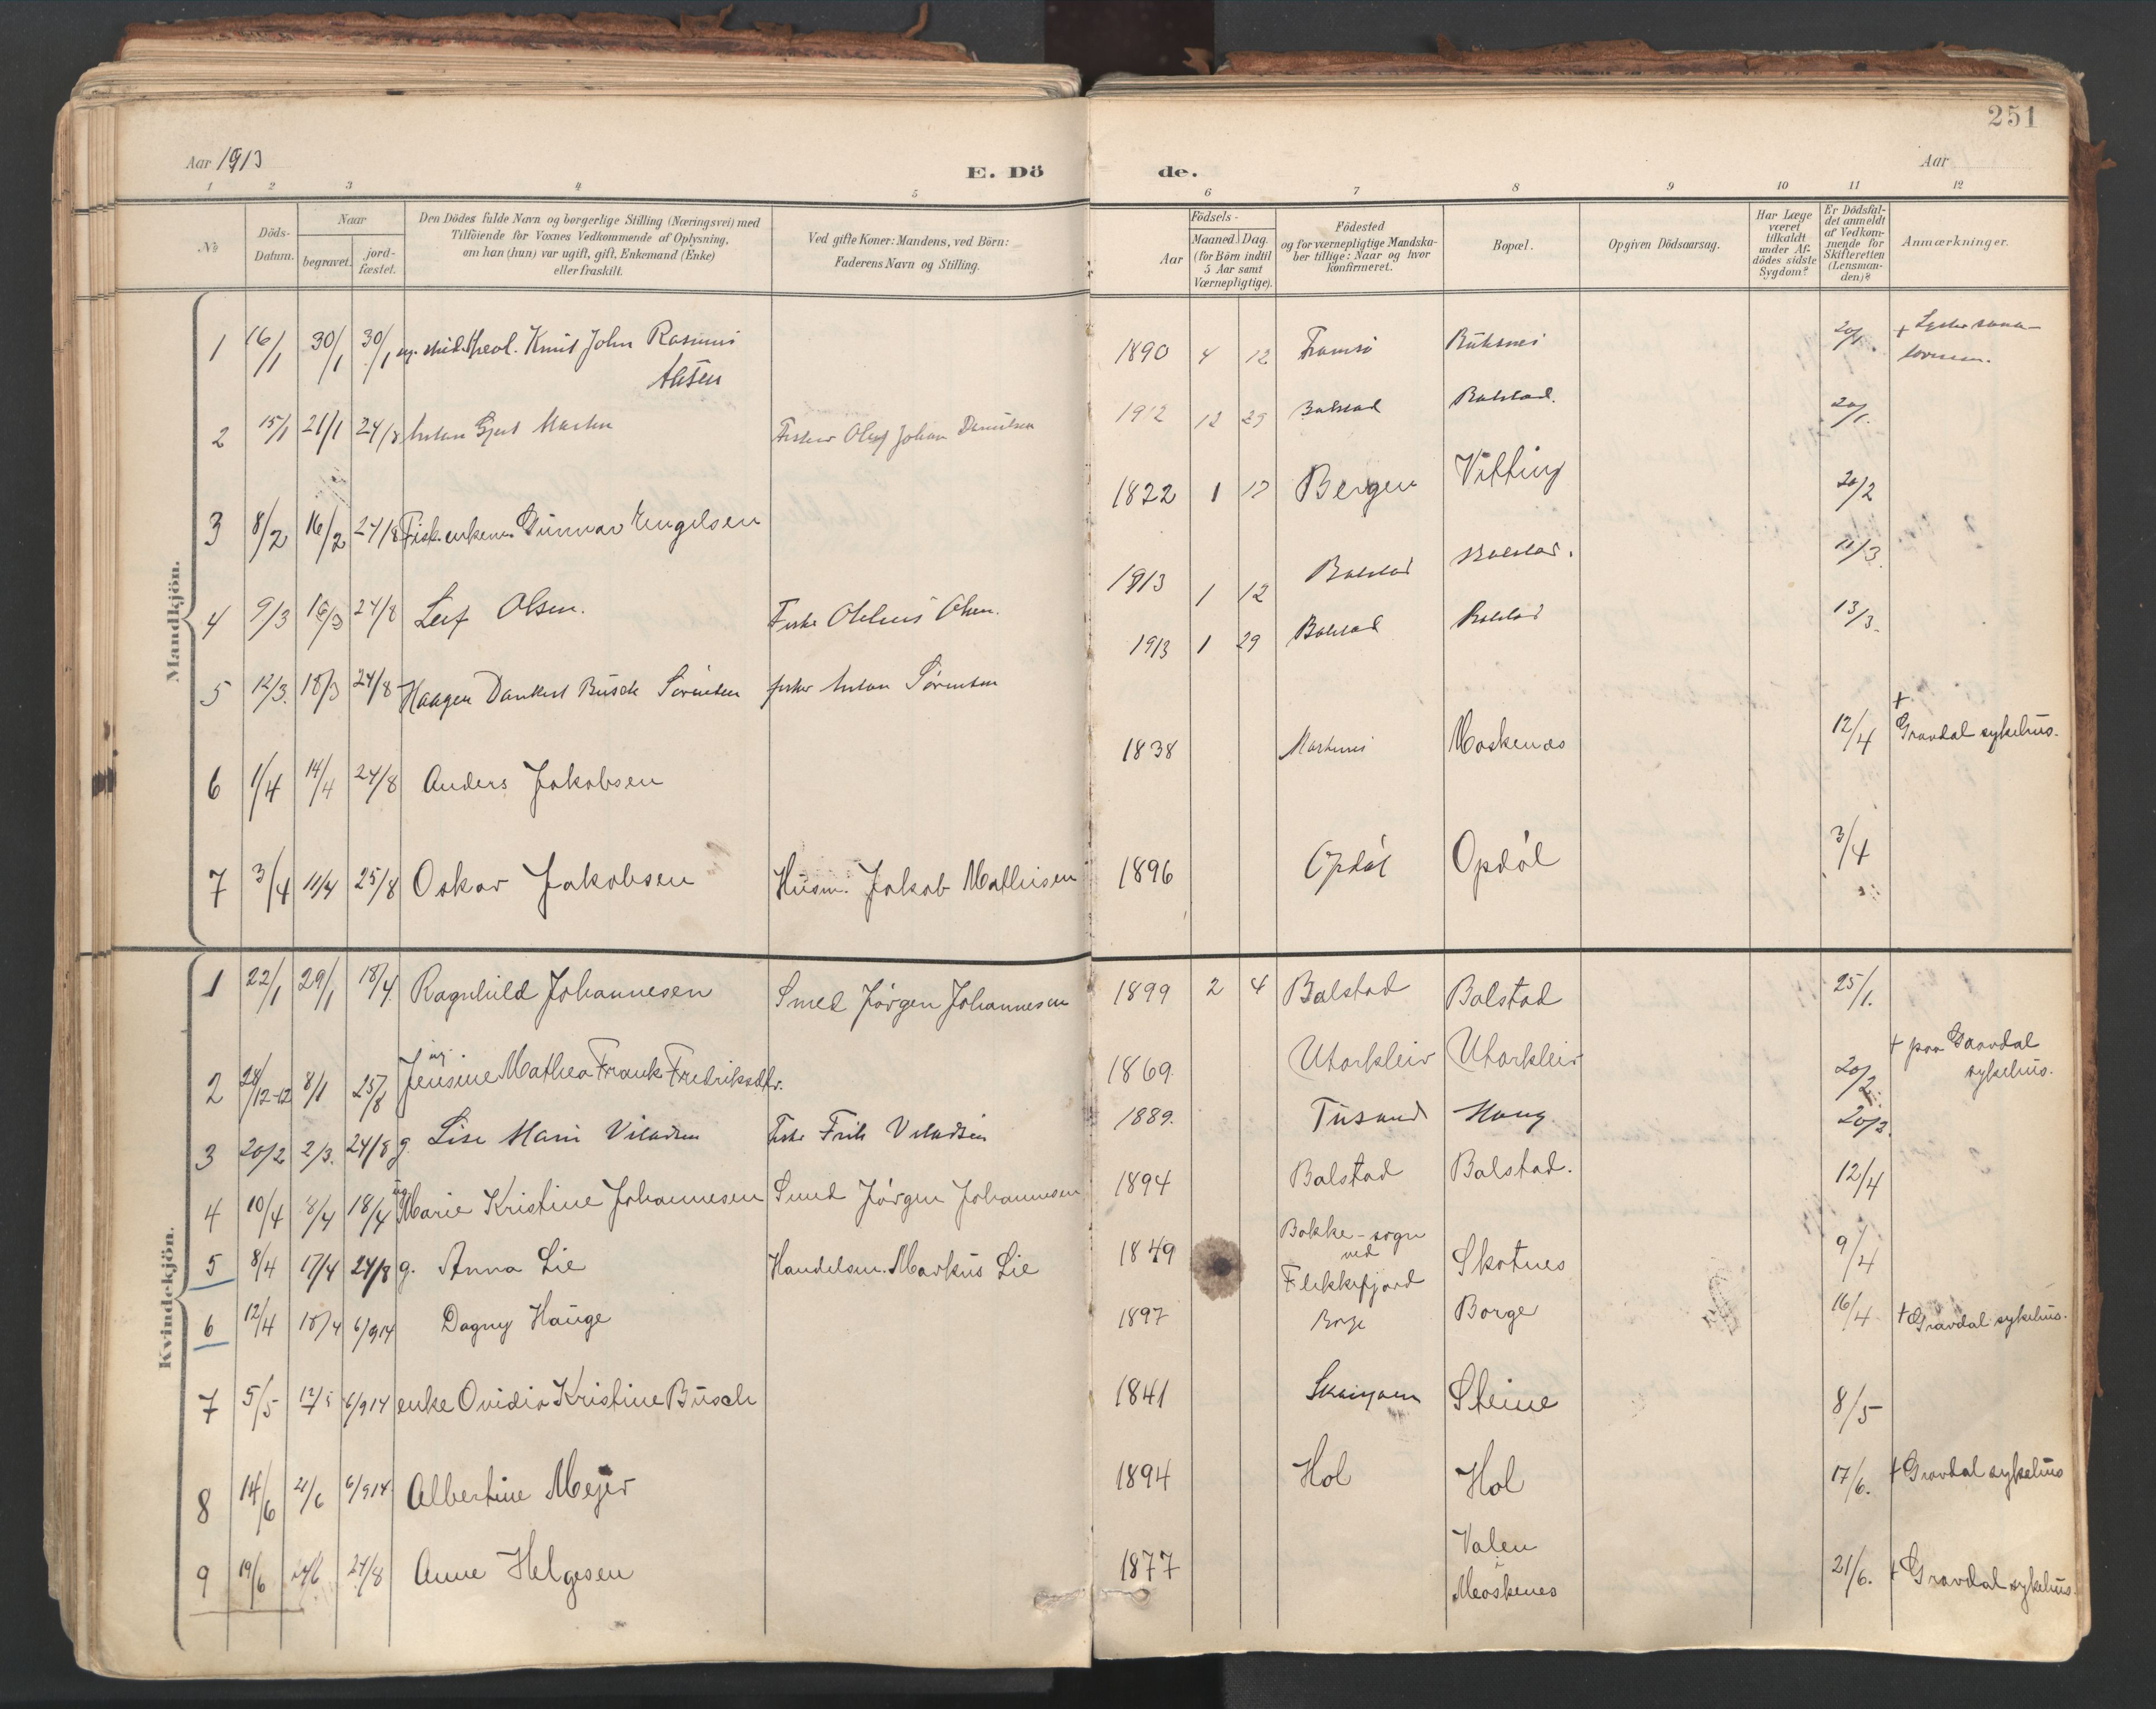 251
Aar 1913
E. Dö
de.
Aar
1 2 3 4 5 6 7 8 9 10 11 12
№
Döds-
Datum.
Naar
begravet.
jord-
fæstet.
Den Dödes fulde Navn og borgerlige Stilling (Næringsvei) med
Tilföiende for Voxnes Vedkommende af Oplysning,
om han (hun) var ugift, gift, Enkemand (Enke)
eller fraskilt.
Ved gifte Koner: Mandens, ved Börn:
Faderens Navn og Stilling.
Födsels-
Aar
Maaned. Dag.
(for Börn indtil
5 Aar samt
Værnepligtige).
Födested
og for værnepligtige Mandska-
ber tillige: Naar og hvor
konfirmeret.
Bopæl.
Opgiven Dödsaarsag.
Har Læge
været
tilkaldt
under Af-
dödes sidste
Sygdom?
Er Dödsfal-
det anmeldt
af Vedkom-
mende for
Skifteretten
(Lensman-
den)?
Anmærkninger.
Mandkjön.
1 16/1 30/1 30/1 ug. stud. theol. Knut John Rasmus 1890 4 12 Tromsø Buksnes 20/1. +
2 15/1 21/1 24/8 Anton Gjert Martin Fisker Oluf Johan Danielsen 1912 12 29 Balstad Balstad. 20/1.
3 8/2 16/2 24/8 Fisk. enkem. Gunnar Engelsen 1822 1 17 Bergen 20/2
4 9/3 16/3 24/8 Leif Olsen. Fisker Olsen. 1913 1 12 Balstad Balstad. 11/3.
5 12/3. 18/3 24/8 Haagen Dankert Busch Sörensen fisker Anton Sörensen 1913 1 29 Balstad Balstad 13/3.
6 1/4 14/4 24/8 Anders Jakobsen 1838 Moskenes 12/4 + Gravdal sykehus.
7 3/4 11/4 25/8 Oskar Jakobsen Husm. Jakob Mathisen 1896 Opdøl Opdøl 3/4
Kvindekjön.
1 22/1 29/1 18/4. Ragnhild Johannesen Smed Jørgen Johannesen 1899 2 4 Balstad Balstad 25/1.
ug.
2 28/12-12 8/1 25/8 Jensine Mathea Frank Fredriksdtr. 1869. Utakleiv Utakleiv 20/2. + paa Gravdal
sykehus.
3 20/2 2/3. 24/8 g. Lise Marie 1889. Haug 20/2.
4 10/4 8/4 18/4 ug Marie Kristine Johannesen Smed Jørgen Johannesen 1894 Balstad Balstad. 12/4
5 8/4 17/4 24/8 g. Anna Lie Handelsm. Markus Lie 1849 Bakke-sogn
ved
Flekkefjord Skotnes 9/4
6 12/4 18/4 6/9 14 Dagny Hauge 1897 Borge Borge 16/4 + Gravdal sykehus.
7 5/5 12/5 6/9 14 enke Ovidia Kristine Busch 1841 Steine 8/5
8 14/6 21/6 6/9 14 Albertine Mejer 1894 Hol Hol 17/6. + Gravdal sykehus
9 19/6 24/6 24/8 Anne Helgesen 1877 Valen
i
Moskenes 21/6. + Gravdal sykehus.